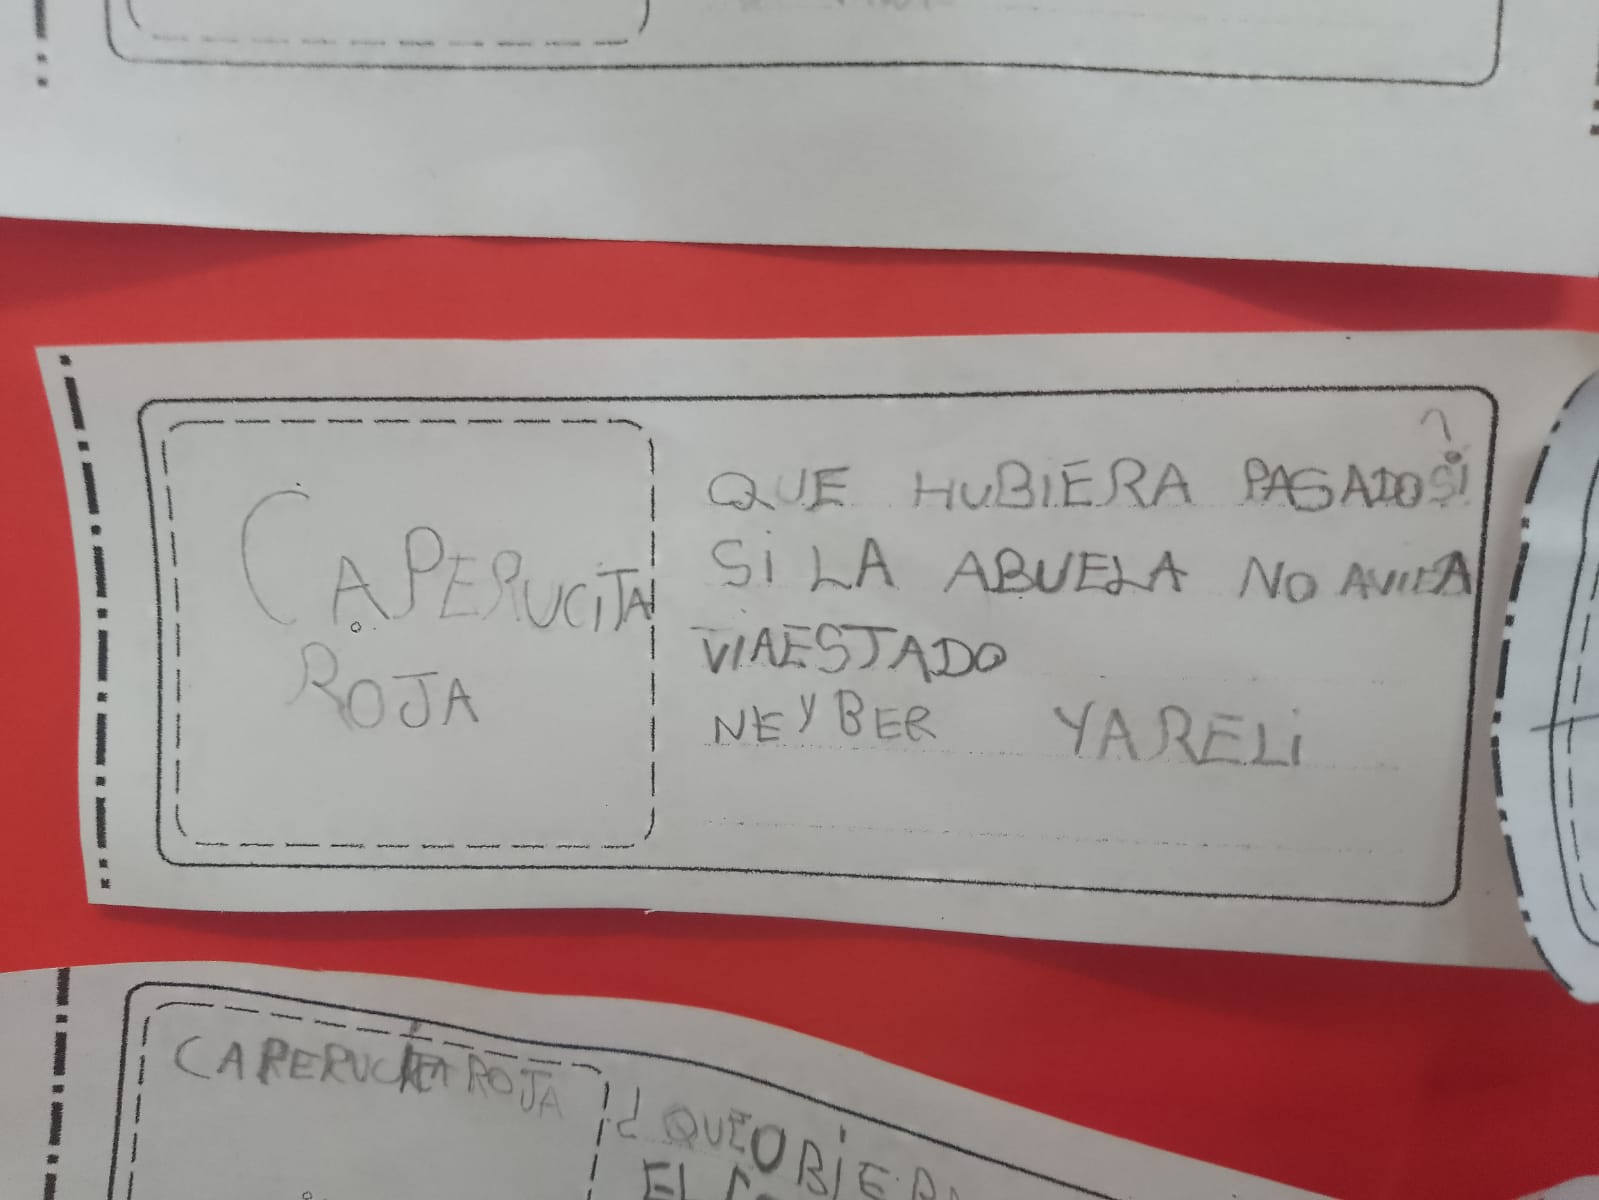 CAPERUCITA
ROJA
QUE HUBIERA PASADO SI ?
SI LA ABUELA NO
VIAESTADO
NEYBER YARELI
CAPERUCITA ROJA
¿QUE OBIERA
EL